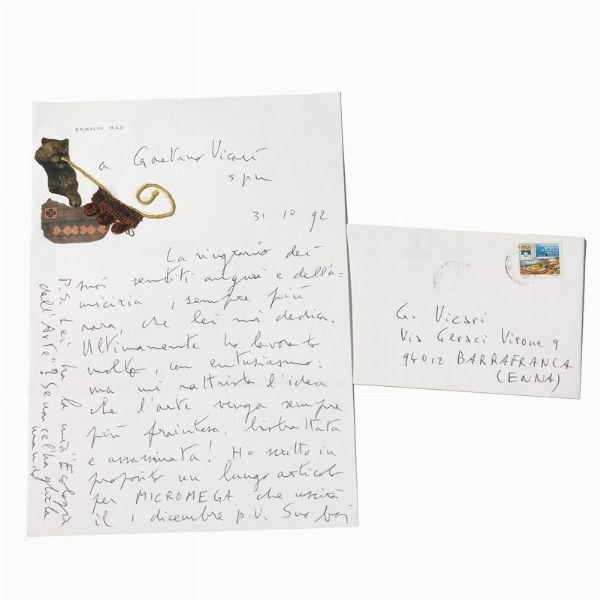 ENRICO BAJ
a Gaetano Vicari
s p m
31 10 92
La ringrazio dei
suoi sentiti auguri e dell'a-
micizia, sempre più
rara, che lei mi dedica.
Ultimamente ho lavorato
molto, con entusiasmo:
ma mi rattrista l'idea
che l'arte venga sempre
più fraintesa, bistrattata
e assassinata! Ho scritto in
proposito un lungo articolo
per MICROMEGA che uscirà
il 1 dicembre p.v. Suo baj
P.S. Lei ha la mia "Ecologia
dell'Arte"? Se non ce l'ha gliela
mando
G. Vicari
Via Geraci Virone 9
94012 BARRAFRANCA
(ENNA)